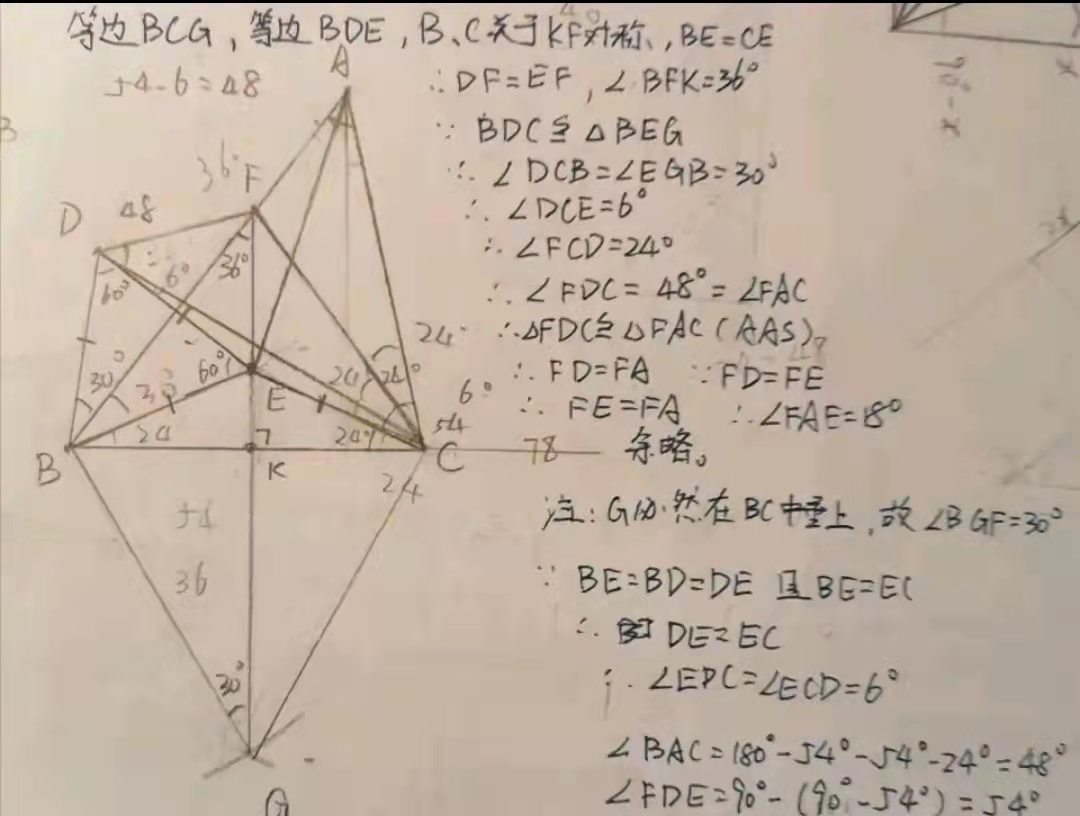 等边BCG,等边BDE,B、C关于KF对称,BE=CE
54-6=48
∴DF=EF,∠BFK=36°
∵BDC≌△BEG
∴∠DCB=∠EGB=30°
∴∠DCE=6°
∴∠FCD=24°
∴∠FDC=48°=∠FAC
∴△FDC≌△FAC(AAS)。
∴FD=FA ∵FD=FE
∴FE=FA ∴∠FAE=18°
余略。
注:G必然在BC中垂上,故∠BGF=30°
∵BE=BD=DE且BE=EC
∴DE=EC
∴∠EDC=∠ECD=6°
∠BAC=180°-54°-54°-24°=48°
∠FDE=90°-(90°-54°)=54°
A
36°
F
D
48
60°
6°
36°
24
30°
30
60°
E
24
24°
6°
54
B
24
24°
C
78
K
24
54
36
30°
G
90°-x
x